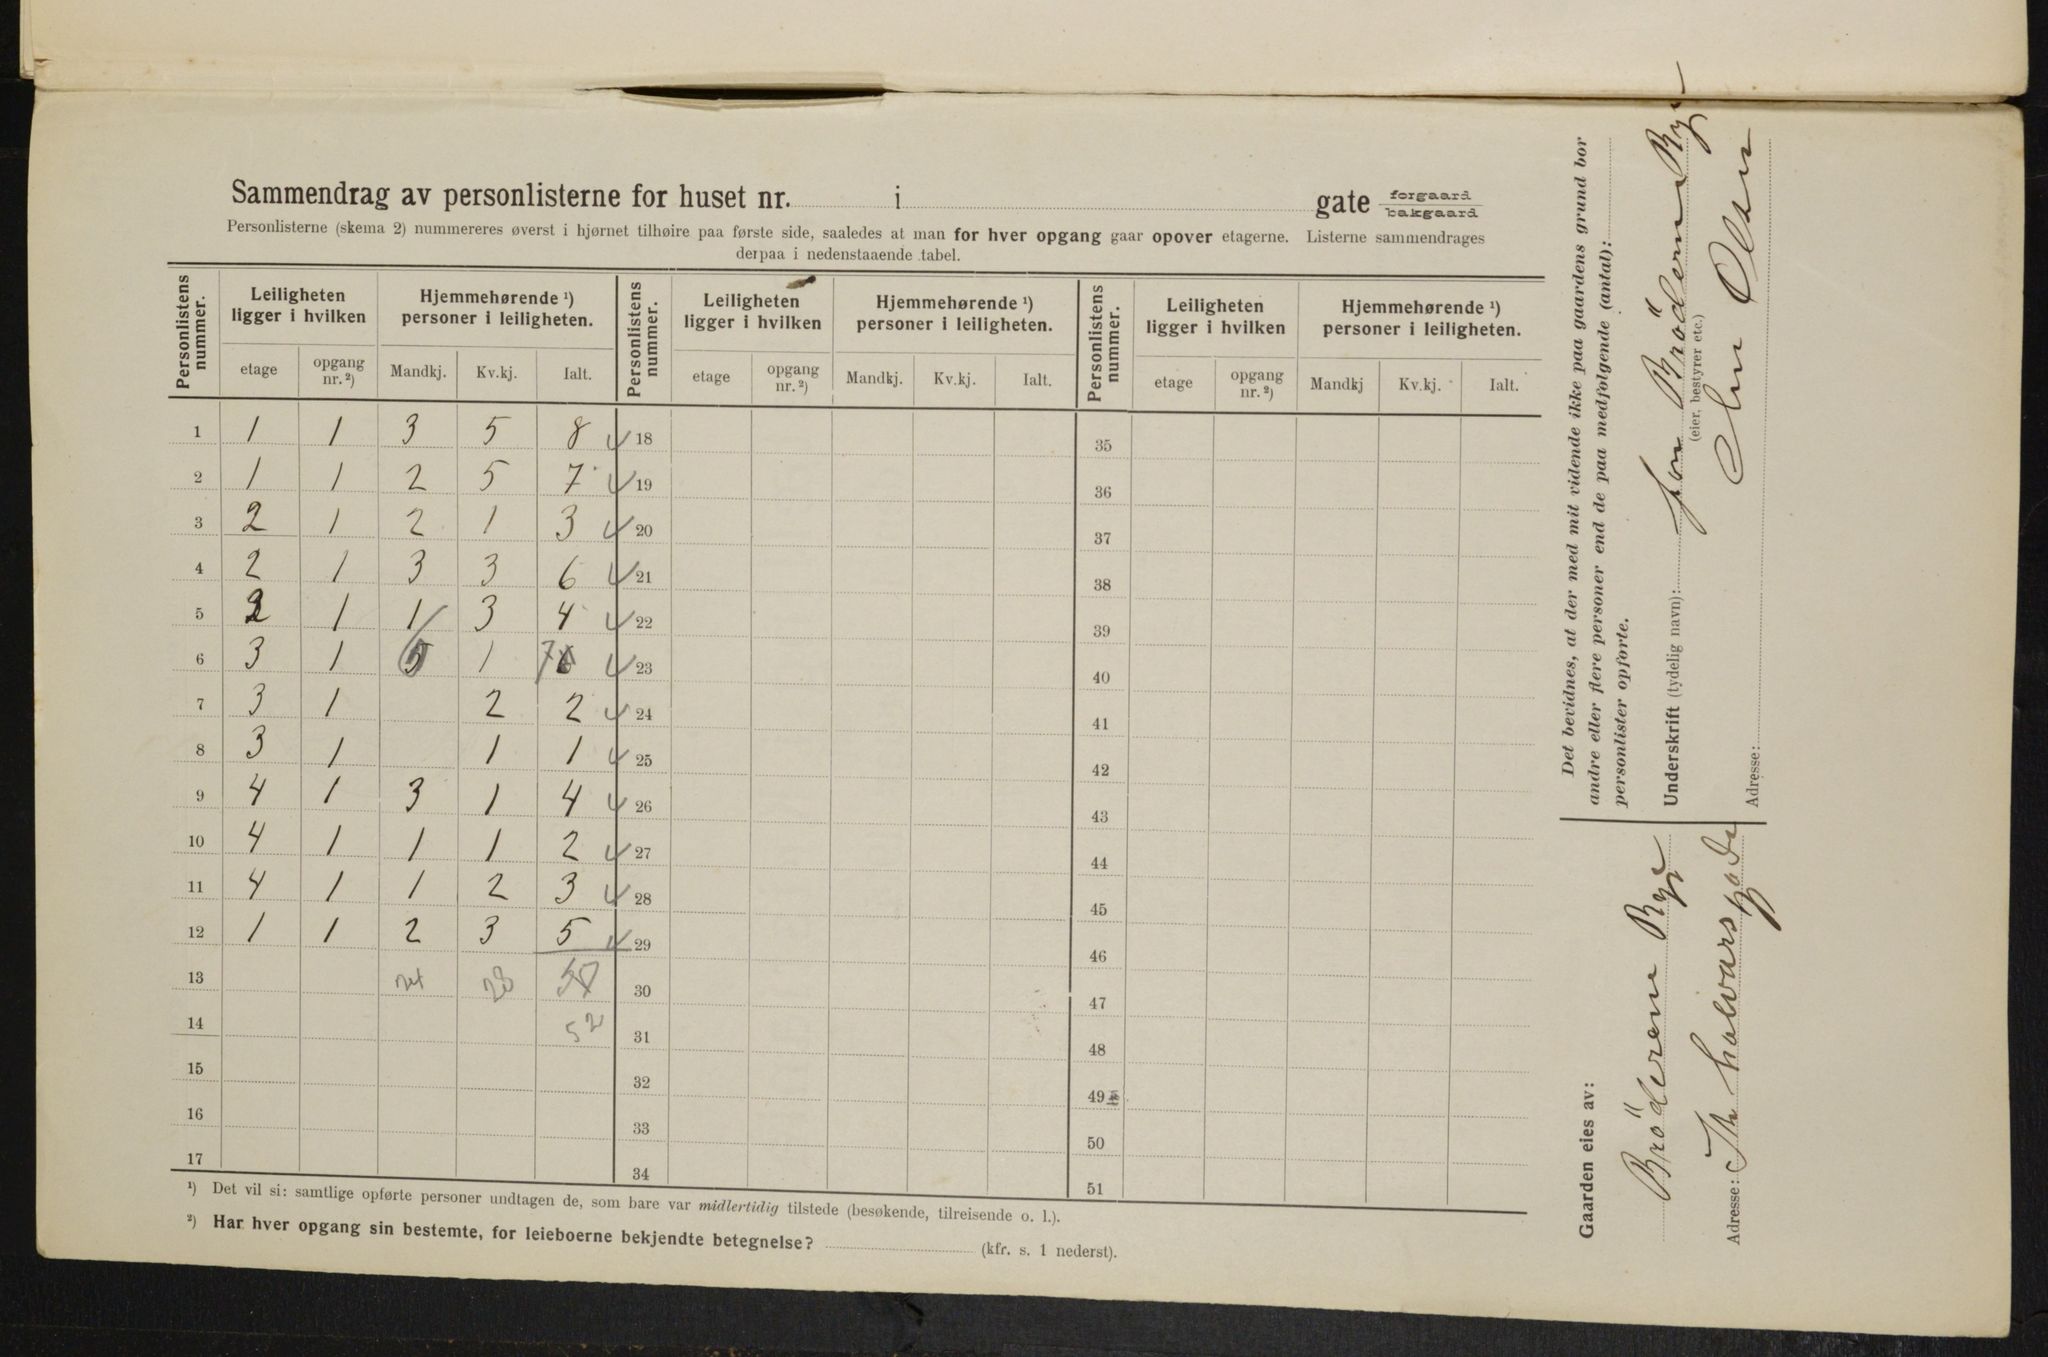 Sammendrag av personlisterne for huset nr. i gate forgaard bakgaard
Personlisterne (skema 2) nummereres øverst i hjørnet tilhøire paa første side, saaledes at man for hver opgang gaar opover etagerne. Listerne sammendrages
derpaa i nedenstaaende tabel.
Personlistens nummer. Leiligheten ligger i hvilken Hjemmehørende ¹) personer i leiligheten. Personlistens nummer. Leiligheten ligger i hvilken Hjemmehørende ¹) personer i leiligheten. Personlistens nummer. Leiligheten ligger i hvilken Hjemmehørende ¹) personer i leiligheten.
etage opgang nr. ²) Mandkj. Kv.kj. Ialt. etage opgang nr. ²) Mandkj. Kv.kj. Ialt. etage opgang nr. ²) Mandkj Kv.kj. Ialt.
1 1 1 3 5 8 18 35
2 1 1 2 5 7 19 36
3 2 1 2 1 3 20 37
4 2 1 3 3 6 21 38
5 2 1 1 3 4 22 39
6 3 1 6 1 7 23 40
7 3 1 2 2 24 41
8 3 1 1 1 25 42
9 4 1 3 1 4 26 43
10 4 1 1 1 2 27 44
11 4 1 1 2 3 28 45
12 1 1 2 3 5 29 46
13 24 28 30 47
14 52 31 48
15 32 49
16 33 50
17 34 51
¹) Det vil si: samtlige opførte personer undtagen de, som bare var midlertidig tilstede (besøkende, tilreisende o. l.).
²) Har hver opgang sin bestemte, for leieboerne bekjendte betegnelse? (kfr. s. 1 nederst).
Det bevidnes, at der med mit vidende ikke paa gaardens grund bor
andre eller flere personer end de paa medfølgende (antal):
personlister opførte.
Underskrift (tydelig navn): for Brödrene Rye
(eier, bestyrer etc.)
Olsen
Adresse:
Gaarden eies av:
Brödrene Rye
Adresse: St halvarsgade